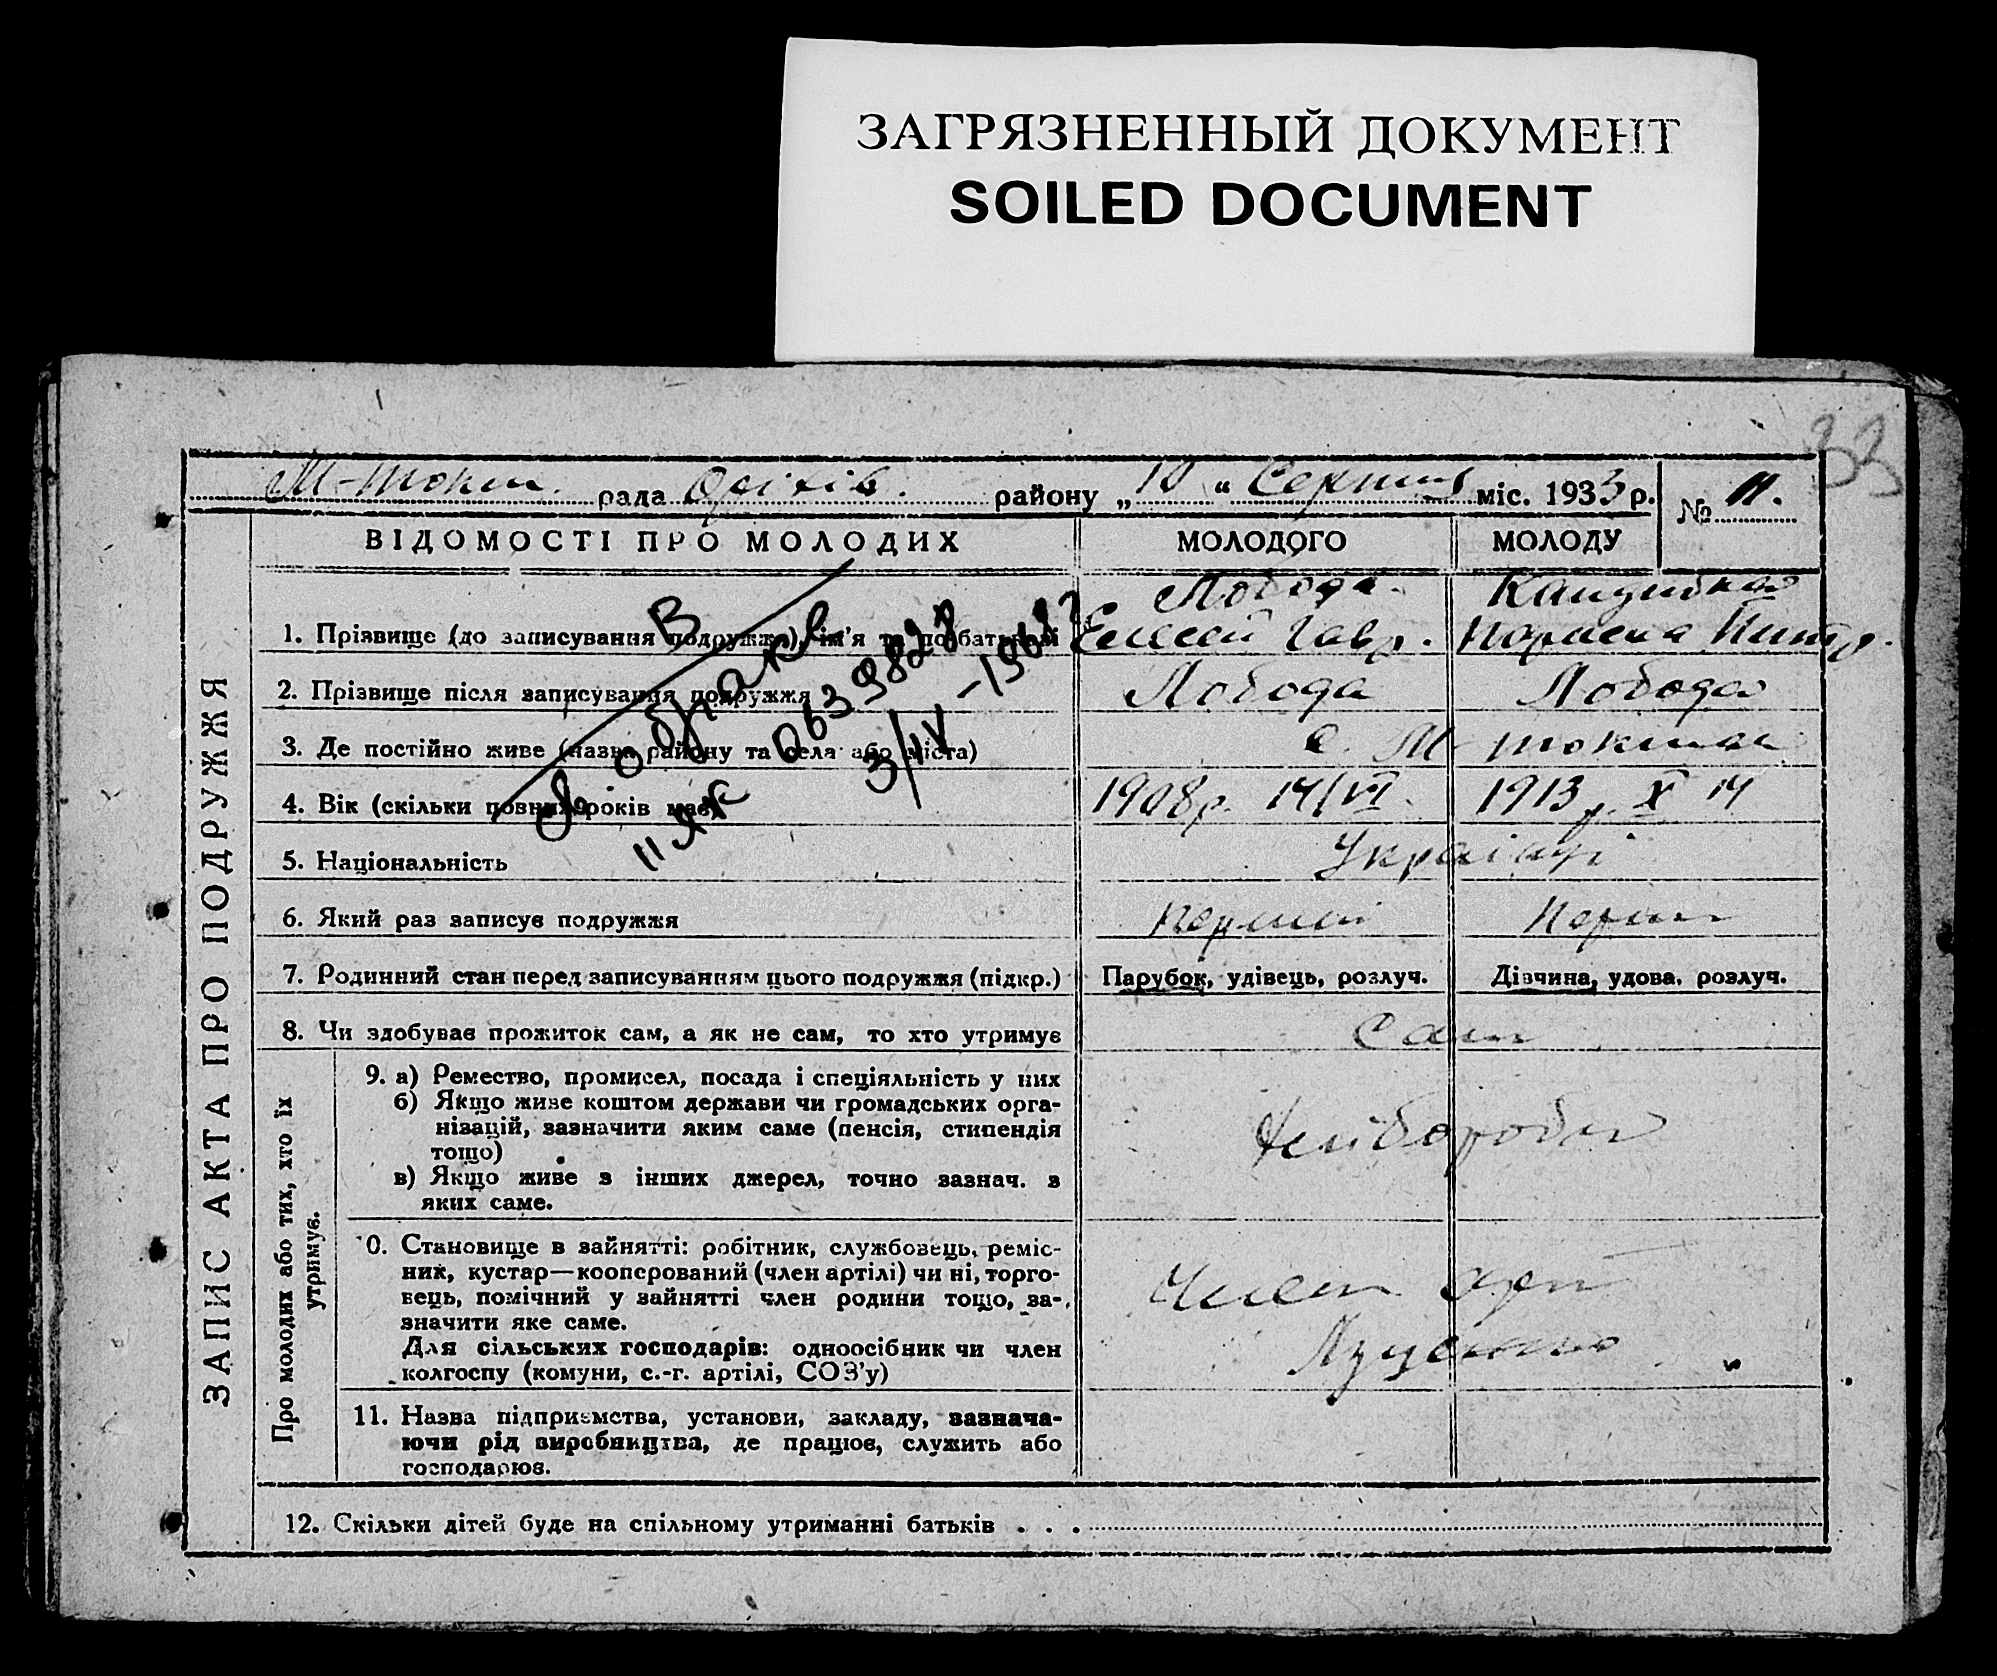 ЗАГРЯЗНЕННЫЙ ДОКУМЕНТ
SOILED DOCUMENT
33
М-Токм. рада Оріхів. району „10“ Серпня міс. 1933 р. № 11.
ЗАПИС АКТА ПРО ПОДРУЖЖЯ
ВІДОМОСТІ ПРО МОЛОДИХ МОЛОДОГО МОЛОДУ
Лобода
1. Прізвище (до записування подружжя), ім'я та по батькові Елисей Гавр.
2. Прізвище після записування подружжя Лобода Лобода
3. Де постійно живе (назва району та села або міста) с. М-Токмак
4. Вік (скільки повних років має) 1908р. 14/VI. 1913р. X 14
5. Національність Українці
6. Який раз записує подружжя Перший Перший
7. Родинний стан перед записуванням цього подружжя (підкр.) Парубок, удівець, розлуч. Дівчина, удова, розлуч.
8. Чи здобуває прожиток сам, а як не сам, то хто утримує Сам
Про молодих або тих, хто їх
утримує.
9. а) Ремество, промисел, посада і спеціяльність у них
б) Якщо живе коштом держави чи громадських орга-
нізацій, зазначити яким саме (пенсія, стипендія
тощо)
в) Якщо живе з інших джерел, точно зазнач. з
яких саме.
Хліборобы
0. Становище в зайнятті: робітник, службовець, реміс-
ник, кустар—кооперований (член артілі) чи ні, торго-
вець, помічний у зайнятті член родини тощо, за-
значити яке саме.
Для сільських господарів: одноосібник чи член
колгоспу (комуни, с.-г. артілі, СОЗ'у)
Член арт
11. Назва підприємства, установи, закладу, зазнача-
ючи рід виробництва, де працює, служить або
господарює.
12. Скільки дітей буде на спільному утриманні батьків . . .
В
о браке
II ЯК 0639828
3/IV -1968